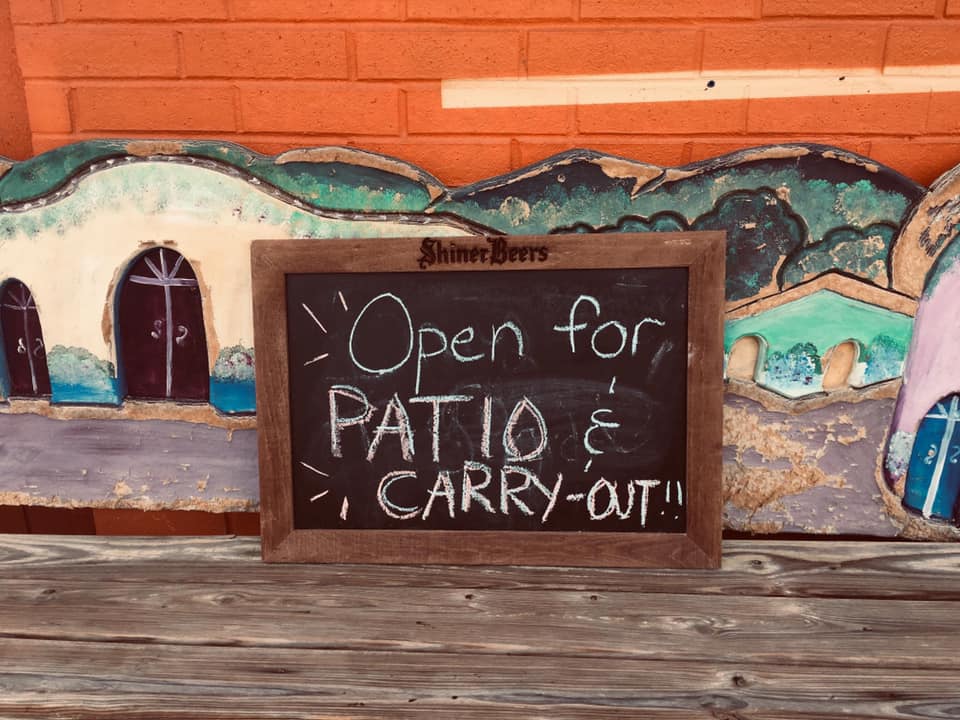 Shiner Beers
Open for
PATIO &
CARRY-OUT!!